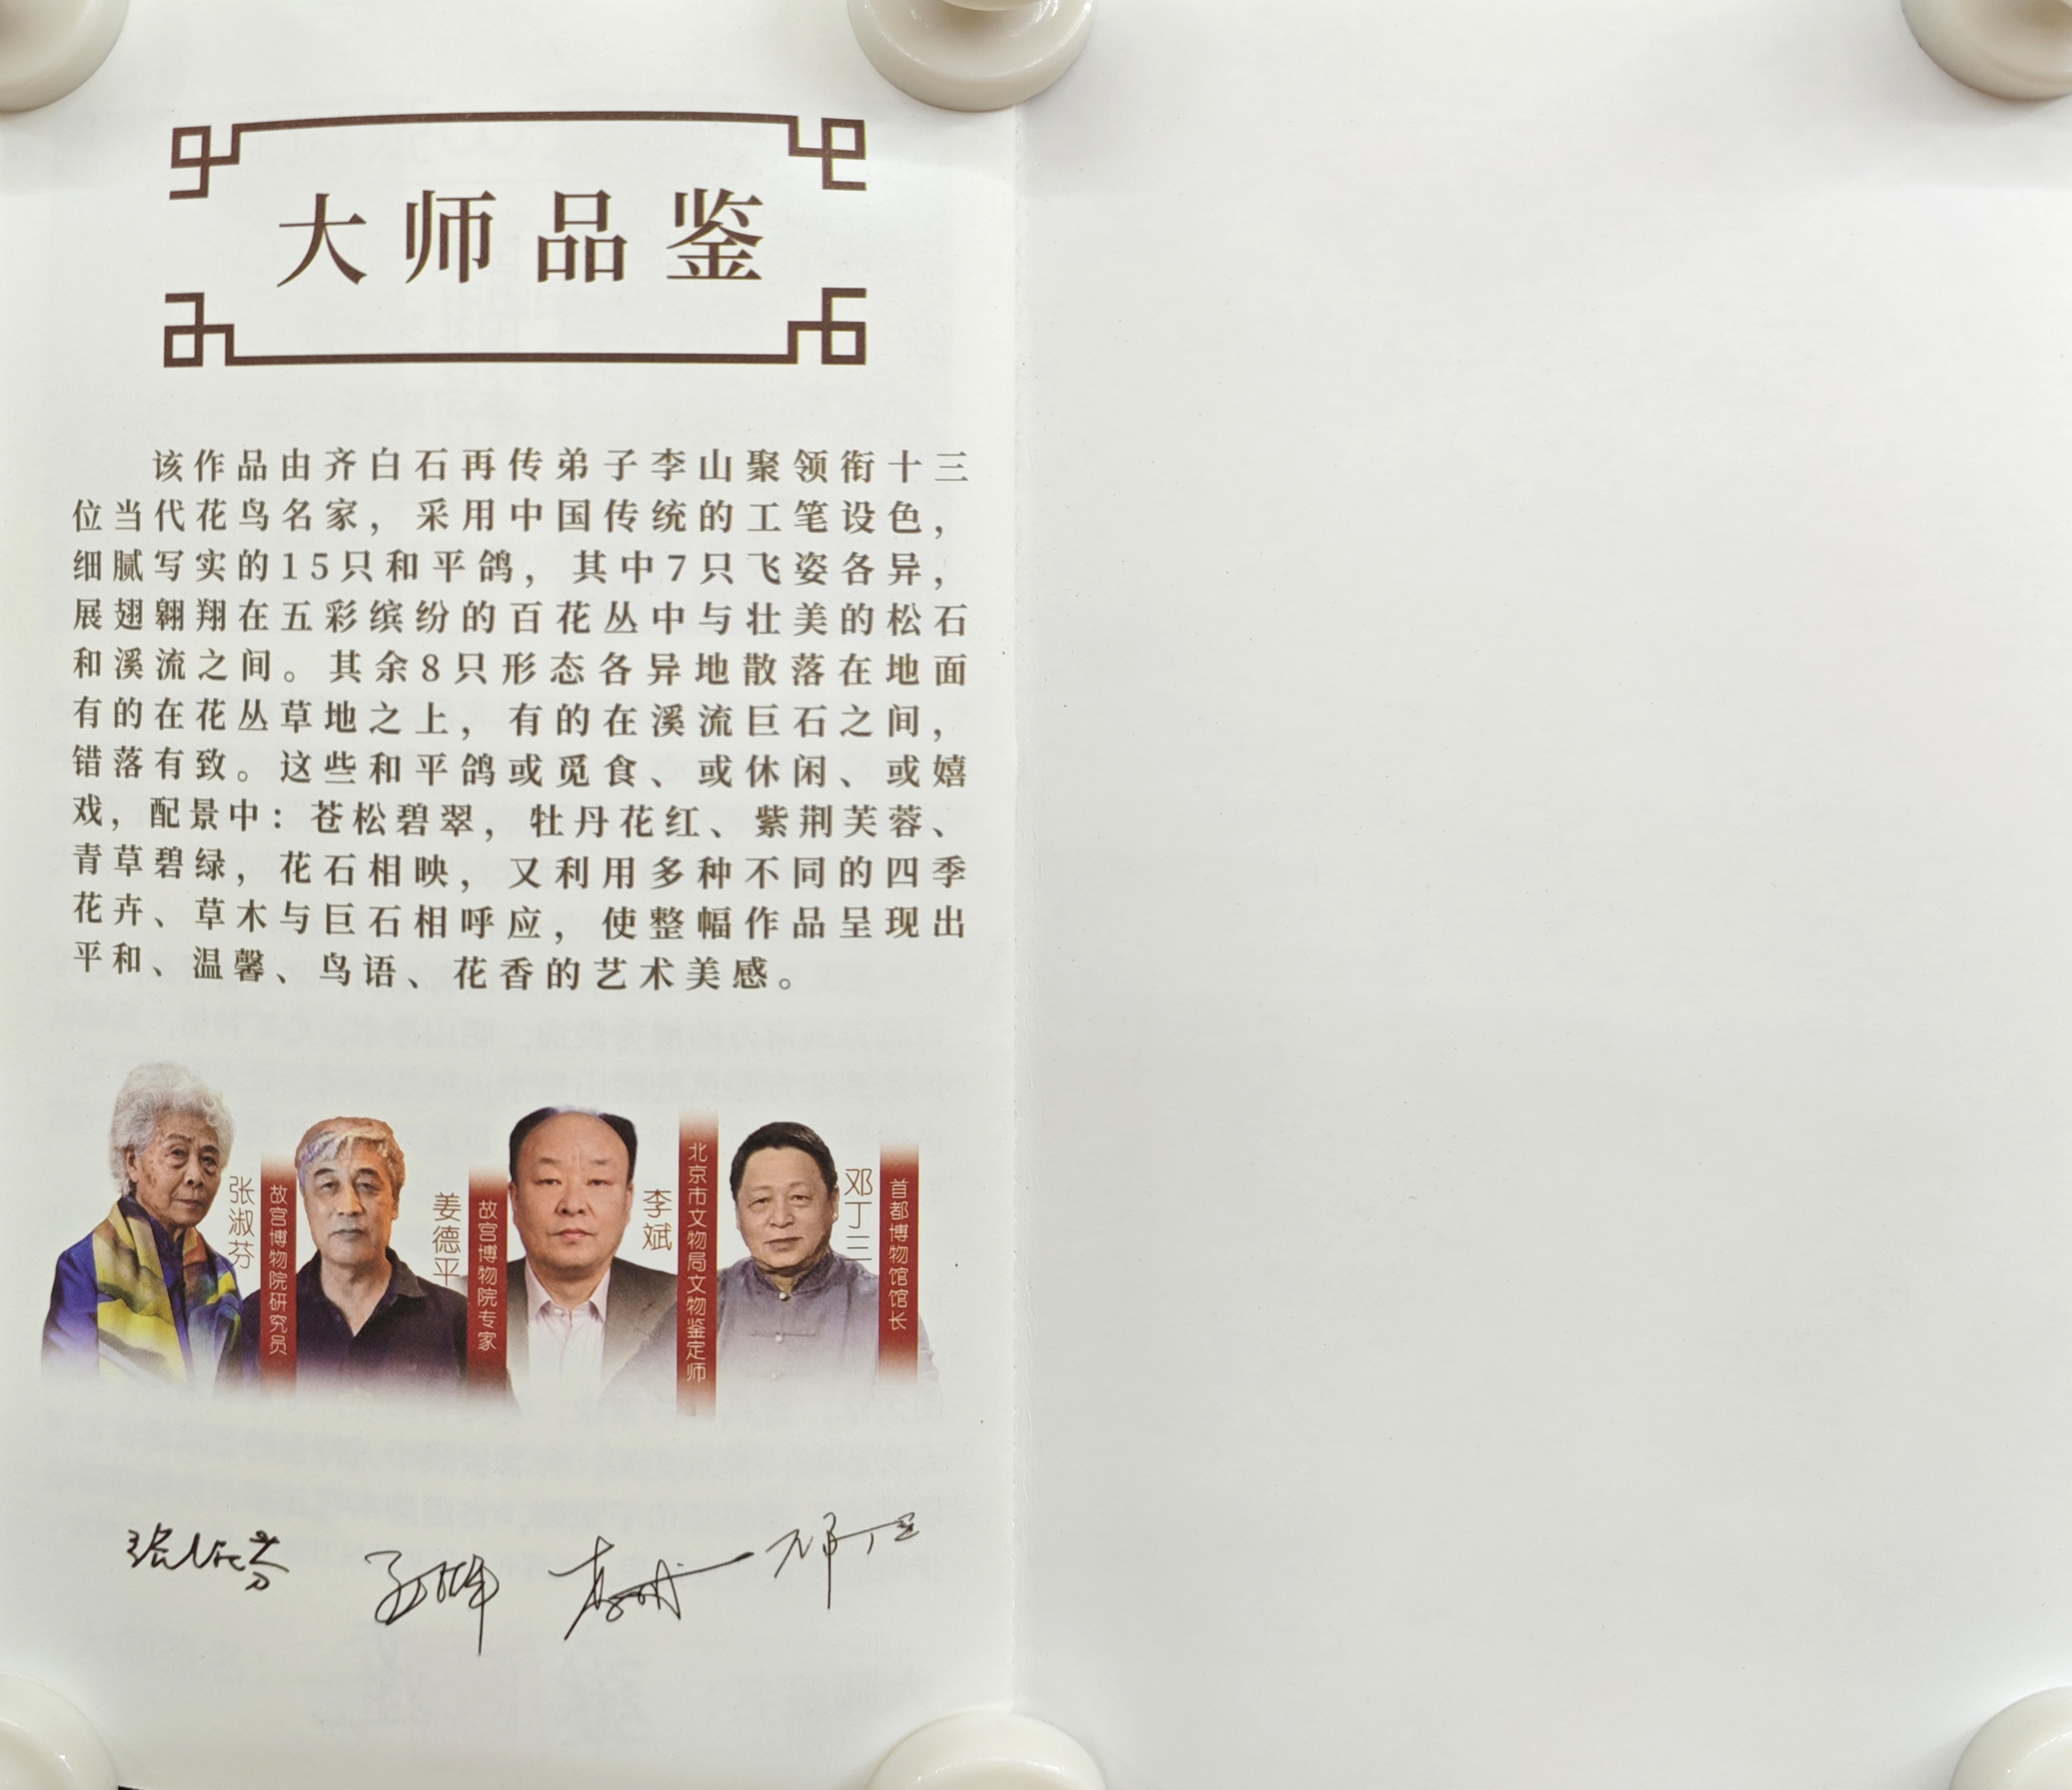 大师品鉴
该作品由齐白石再传弟子李山聚领衔十三
位当代花鸟名家，采用中国传统的工笔设色，
细腻写实的15只和平鸽，其中7只飞姿各异，
展翅翱翔在五彩缤纷的百花丛中与壮美的松石
和溪流之间。其余8只形态各异地散落在地面
有的在花丛草地之上，有的在溪流巨石之间，
错落有致。这些和平鸽或觅食、或休闲、或嬉
戏，配景中：苍松碧翠，牡丹花红、紫荆芙蓉、
青草碧绿，花石相映，又利用多种不同的四季
花卉、草木与巨石相呼应，使整幅作品呈现出
平和、温馨、鸟语、花香的艺术美感。
张淑芬
故宫博物院研究员
姜德平
故宫博物院专家
李斌
北京市文物局文物鉴定师
邓丁三
首都博物馆馆长